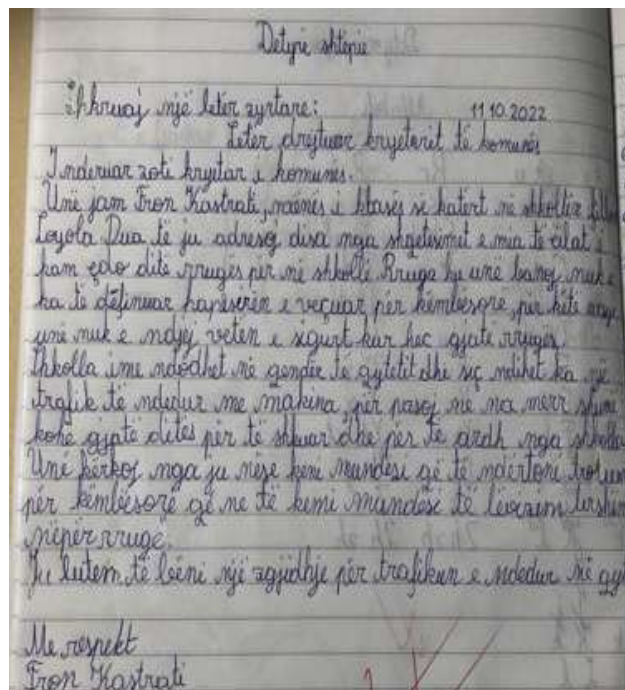 Detyrë shtëpie
Shkruaj një letër zyrtare: 11.10.2022
Letër drejtuar kryetarit të komunës
I nderuar zoti kryetar i komunës.
Unë jam Fron Kastrati, nxënës i klasës së katërt në shkollën
Loyola Dua të ju adresoj disa nga shqetësimet e mia të cilat i
kam çdo ditë rrugës për në shkollë Rruga ku unë banoj nuk e
ka të definuar hapësirën e veçuar për këmbësorë, për këtë arsye
unë nuk e ndjej veten e sigurt kur hec gjatë rrugës
Shkolla ime ndodhet në qendër të qytetit dhe siç ndihet ka një
trafik të ndedur me makina, për pasoj ne na merr shumë
kohë gjatë ditës për të shkuar dhe për të ardh nga shkolla
Unë kërkoj nga ju nëse keni mundësi që të ndërtoni
për këmbësorë që ne të kemi mundësi të lëvizim
nëpër rrugë.
Ju lutem të bëni një zgjidhje për trafikun e ndedur në
Me respekt
Fron Kastrati